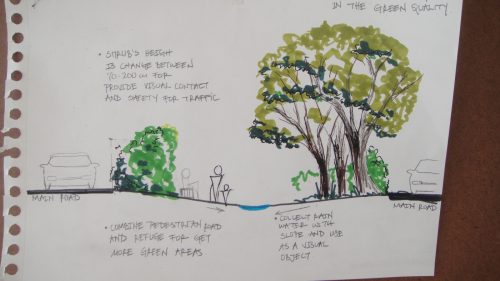 IN THE GREEN QUALITY
• SHRUB'S HEIGH
IS CHANGE BETWEEN
70-200 cm FOR
PROVIDE VISUAL CONTACT
AND SAFETY FOR TRAFFIC
MAIN ROAD
MAIN ROAD
• COMBINE PEDESTRIAN ROAD
AND REFUGE FOR GET
MORE GREEN AREAS
• COLLECT RAIN
WATER WITH
SLOPE AND USE
AS A VISUAL
OBJECT